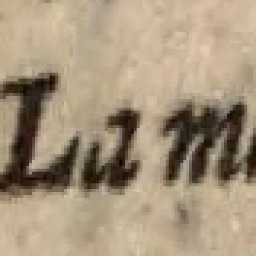 La m